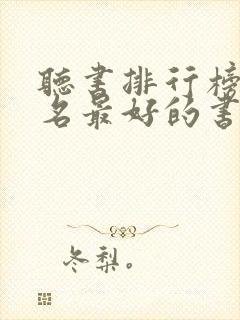 聽書排行榜
名最好的書
冬梨。